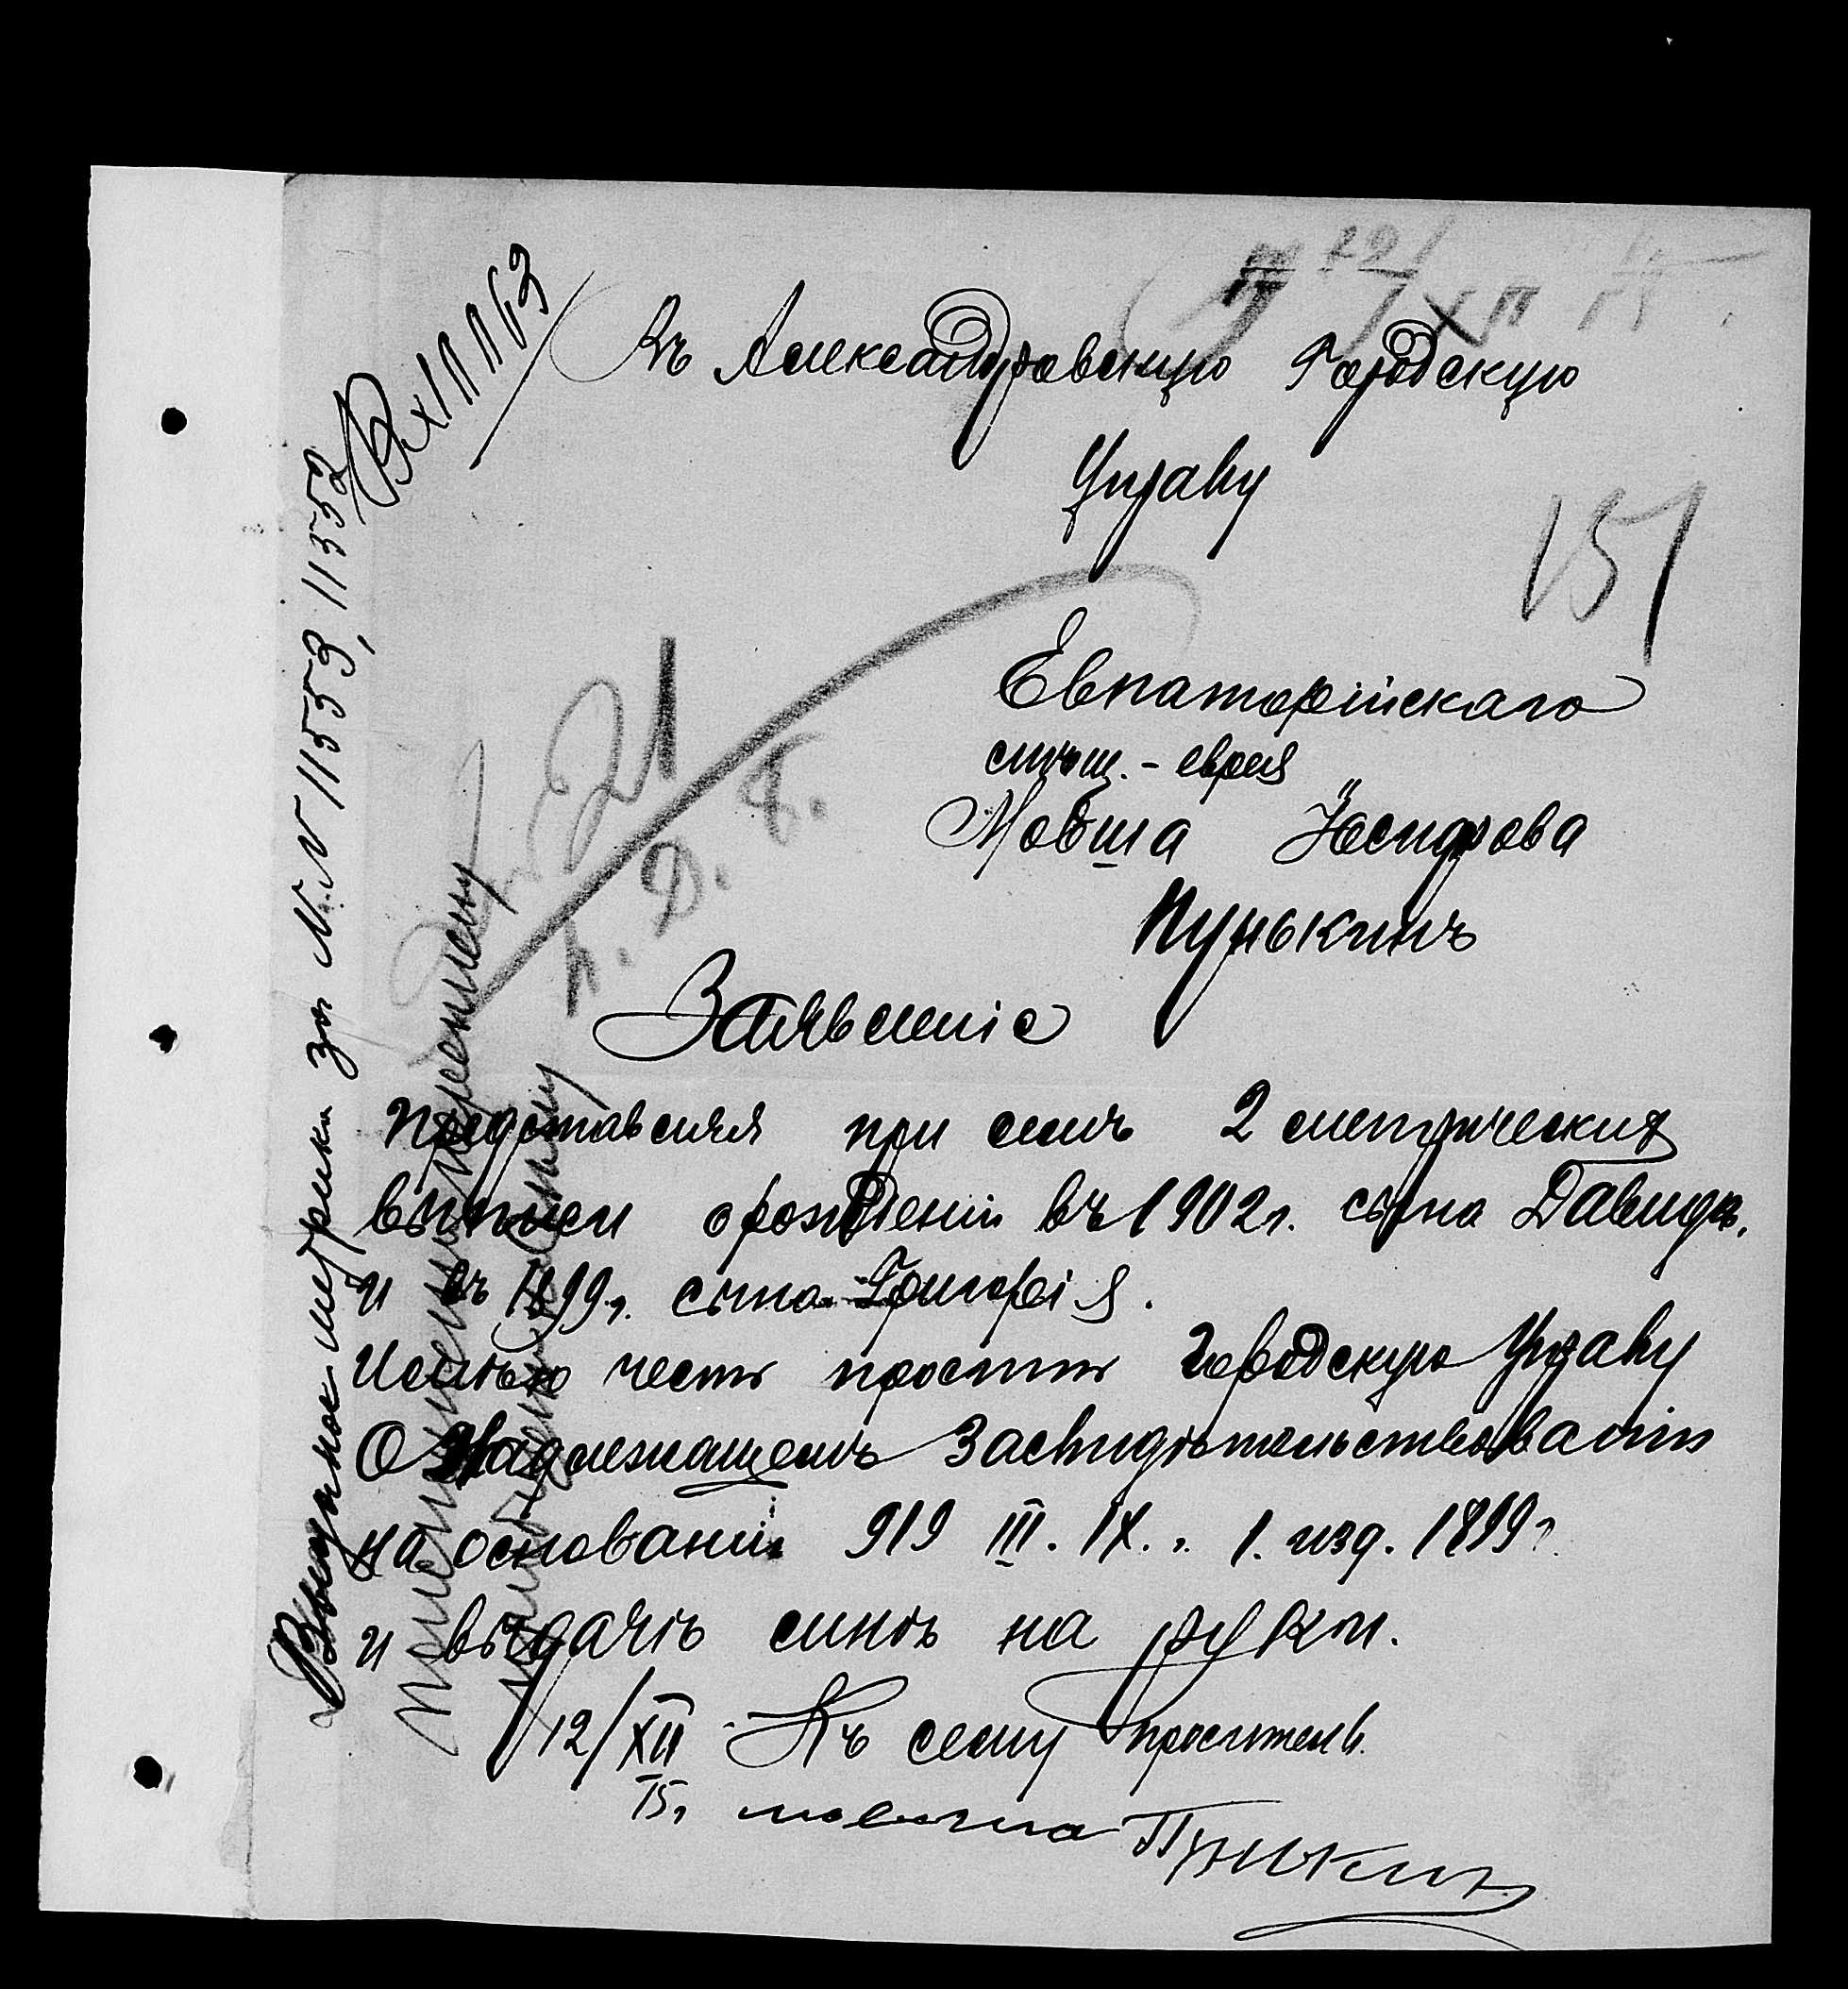 Въ Александровскую Городскую
Управу
151
Евпаторійскаго
мѣщ. - еврея
Мовша Іосифова
Пунькинъ
Заявленіе
Представляя при семъ 2 метрическия
выписи о рожденіи въ 1902 г. сына Давида,
и въ 1899 г. сына Григорія.
Имѣю честь просить Городскую Управу
О надлежащемъ Засвидѣтельствовать
на основаніи 919 III. IX. т. 1. изд. 1899 г.
и выдачѣ мнѣ на руки.
12/XII Къ сему проситель.
15 г. мовша Пункинъ
Вх 11163
метрики за N.N 11553, 11552